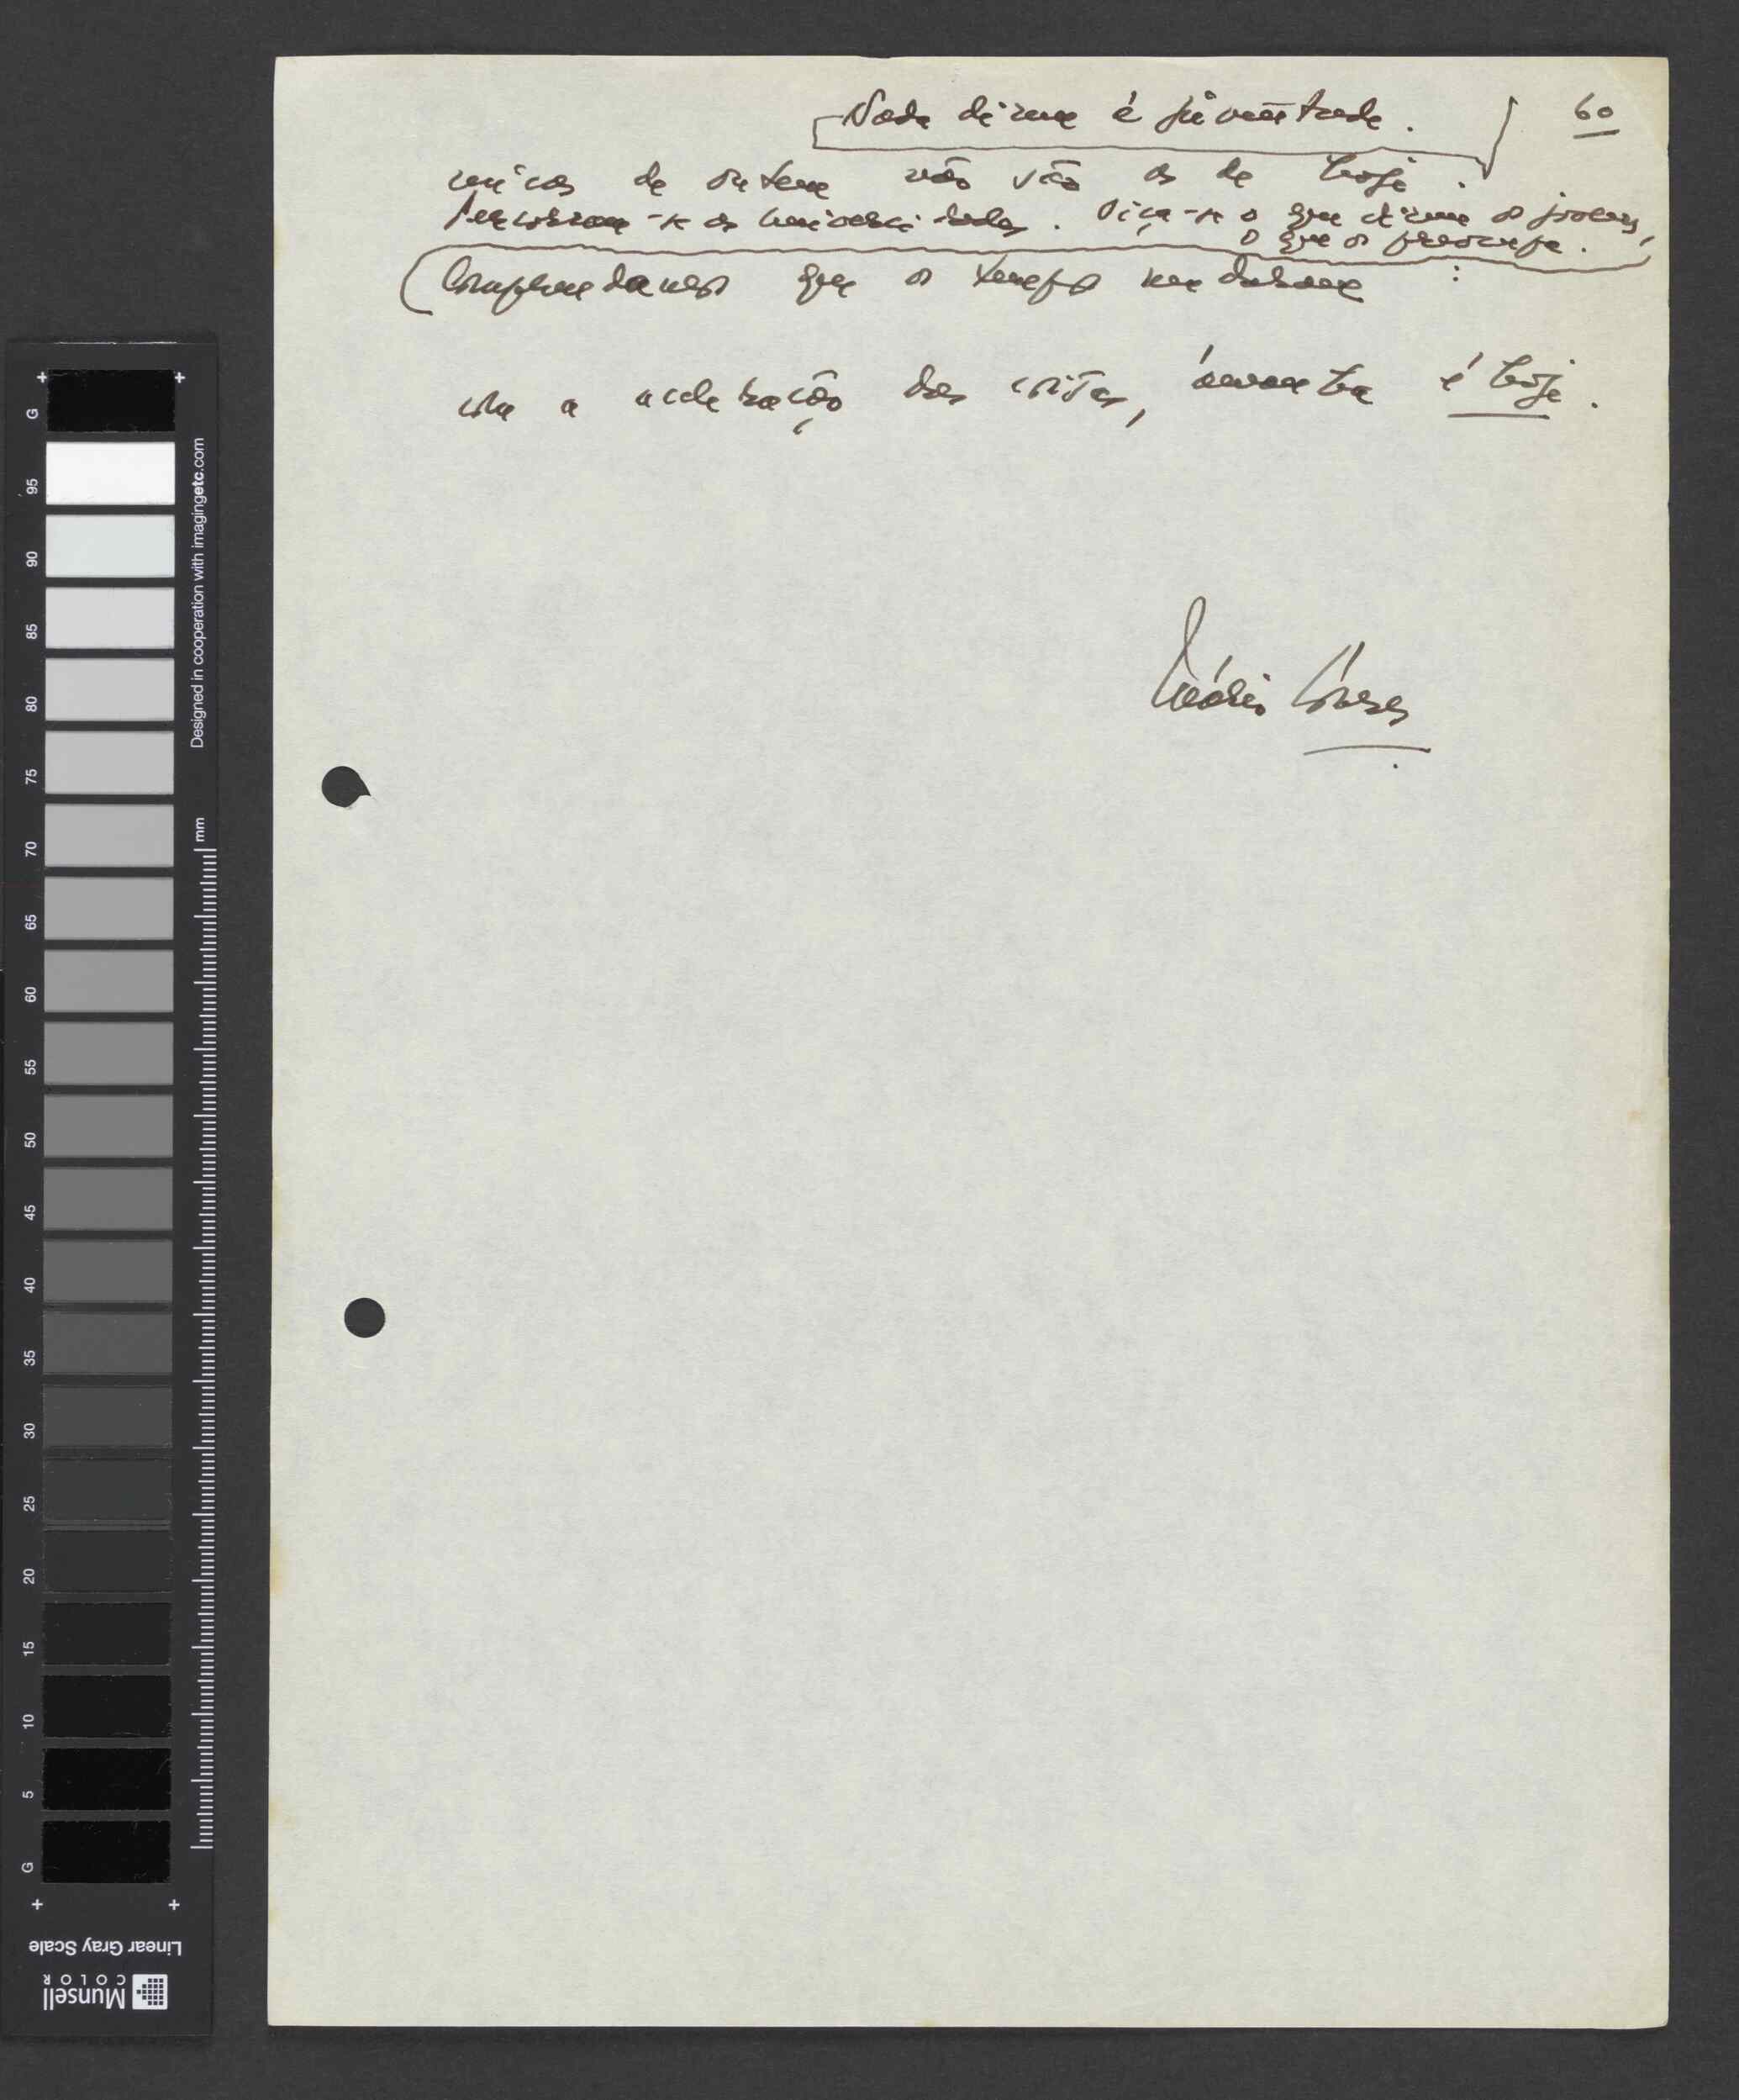 Nada dizem à juventude.
60
micas de ontem não são as de hoje.
Percorram-se as Universidades. Oiça-se o que dizem os jovens,
o que os preocupa.
Compreendamos que os tempos mudaram:
com a aceleração das coisas, àmanhã é hoje.
Mário Soares
G
95
90
85
80
75
70
65
60
55
50
45
40
35
30
25
20
15
10
5
G
Designed in cooperation with imagingetc.com
mm
Linear Gray Scale
Munsell
COLOR